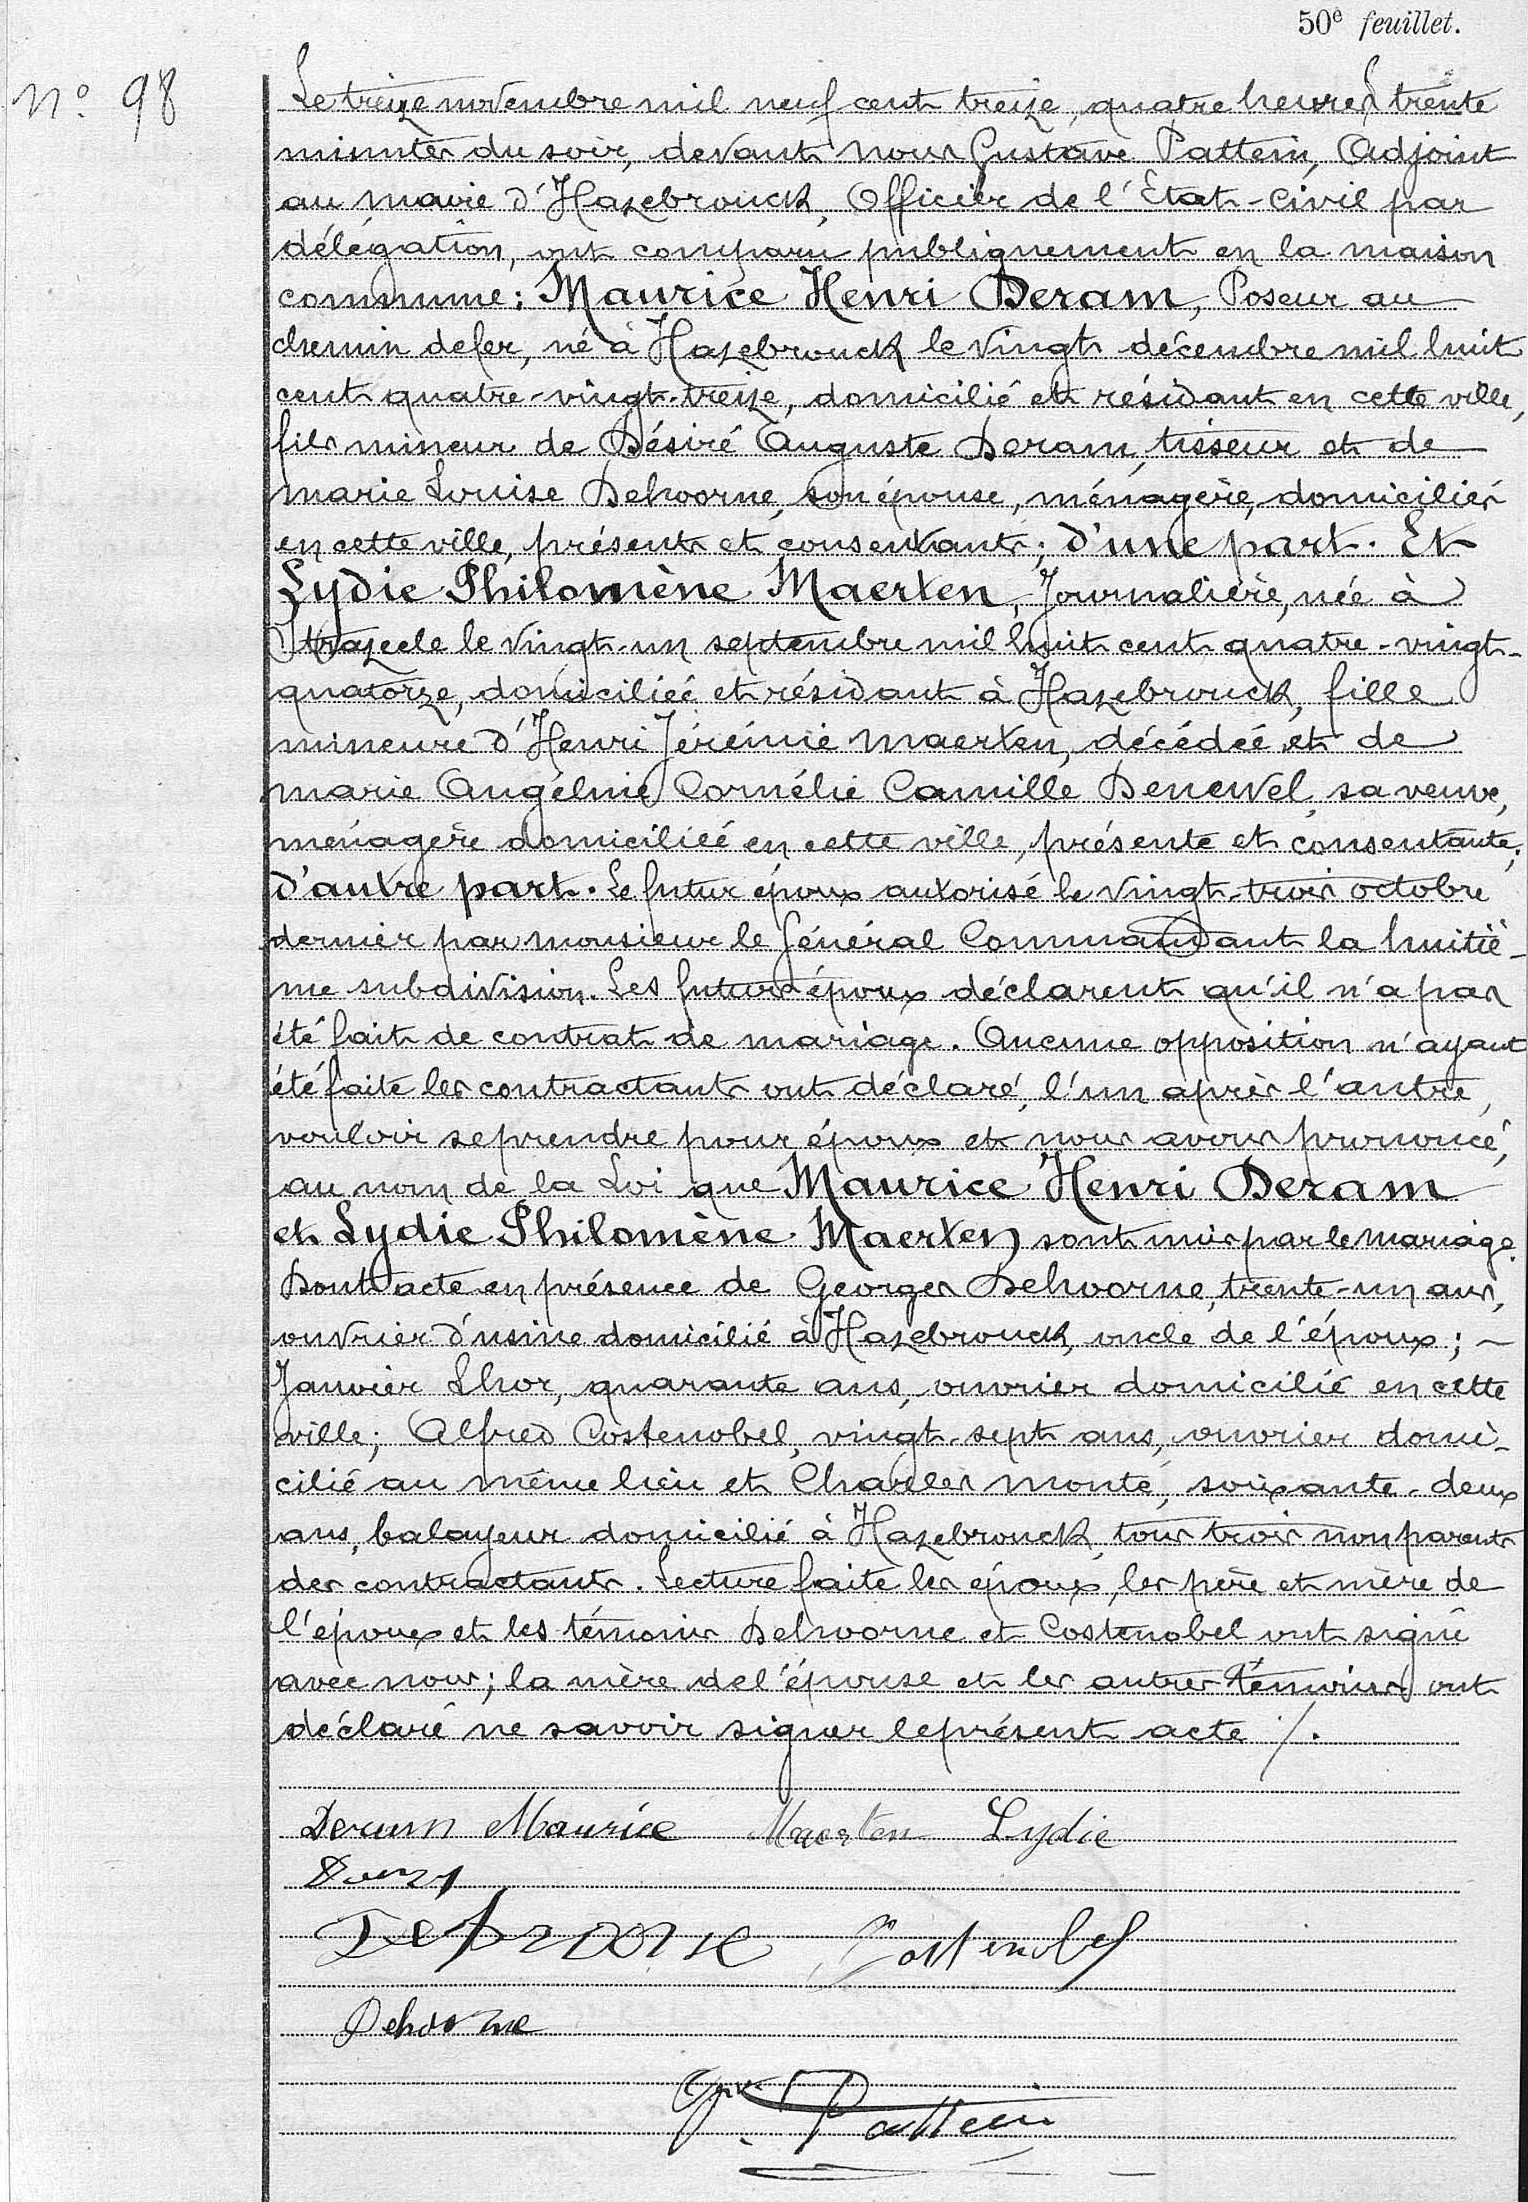 50e feuillet.
No. 98
Le treize novembre mil neuf cent treize, quatre heures trente
minutes du soir, devant nous Gustave Pattein, Adjoint
au maire d'Hazebrouck, Officier de l'Etat-civil par
délégation, ont comparu publiquement en la maison
commune: Maurice Henri Deram, Poseur au
chemin de fer, né à Hazebrouck le vingt décembre mil huit
cent quatre-vingt-treize, domicilié et résidant en cette ville,
fils mineur de Désiré Auguste Deram, tisseur et de
marie Louise Dehoorne, son épouse, ménagère, domiciliés
en cette ville, présents et consentants; d'une part. Et
Lydie Philomène Maerten, Journalière, née à
Strazeele le vingt-un septembre mil huit cent quatre-vingt-
quatorze, domiciliée et résidant à Hazebrouck, fille
mineure d'Henri Jérémie Maerten, décédé et de
marie Angélina Cornélie Camille Denewel, sa veuve,
ménagère domiciliée en cette ville, présente et consentante;
d'autre part. Le futur époux autorisé le vingt-trois octobre
dernier par monsieur le Général Commandant la huitiè-
me subdivision. Les futurs époux déclarent qu'il n'a pas
été fait de contrat de mariage. Aucune opposition n'ayant
été faite les contractants ont déclaré, l'un après l'autre,
vouloir se prendre pour époux et nous avons prononcé,
au nom de la Loi que Maurice Henri Deram
et Lydie Philomène Maerten sont unis par le mariage.
Dont acte en présence de Georges Dehoorne, trente-un ans,
ouvrier d'usine domicilié à Hazebrouck, oncle de l'époux; ~
Janvier Lhor, quarante ans, ouvrier domicilié en cette
ville; Alfred Costenobel, vingt-sept ans, ouvrier domi-
cilié au même lieu et Charles Monté, soixante-deux
ans, balayeur domicilié à Hazebrouck, tous trois non parents
des contractants. Lecture faite les époux, les père et mère de
l'époux et les témoins Dehoorne et Costenobel ont signé
avec nous; la mère de l'épouse et les autres témoins ont
déclaré ne savoir signer le présent acte ./.
Deram Maurice Maerten Lydie
Dehoorne Costenobel
Dehoorne
Gve. Pattein